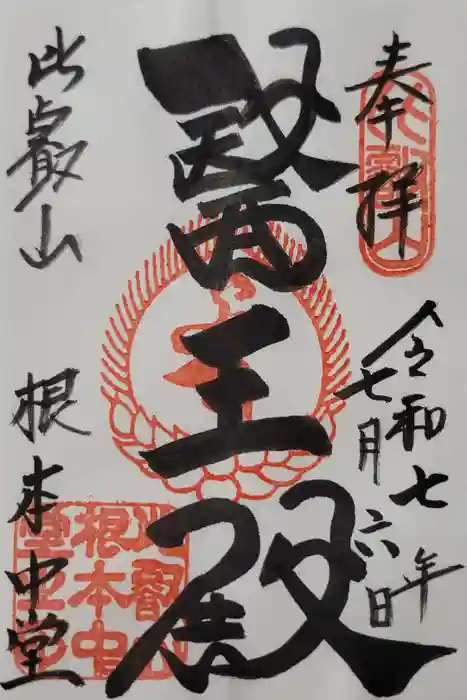 奉拝
令和七年
七月六日
醫王殿
比叡山
根本中堂
比叡山